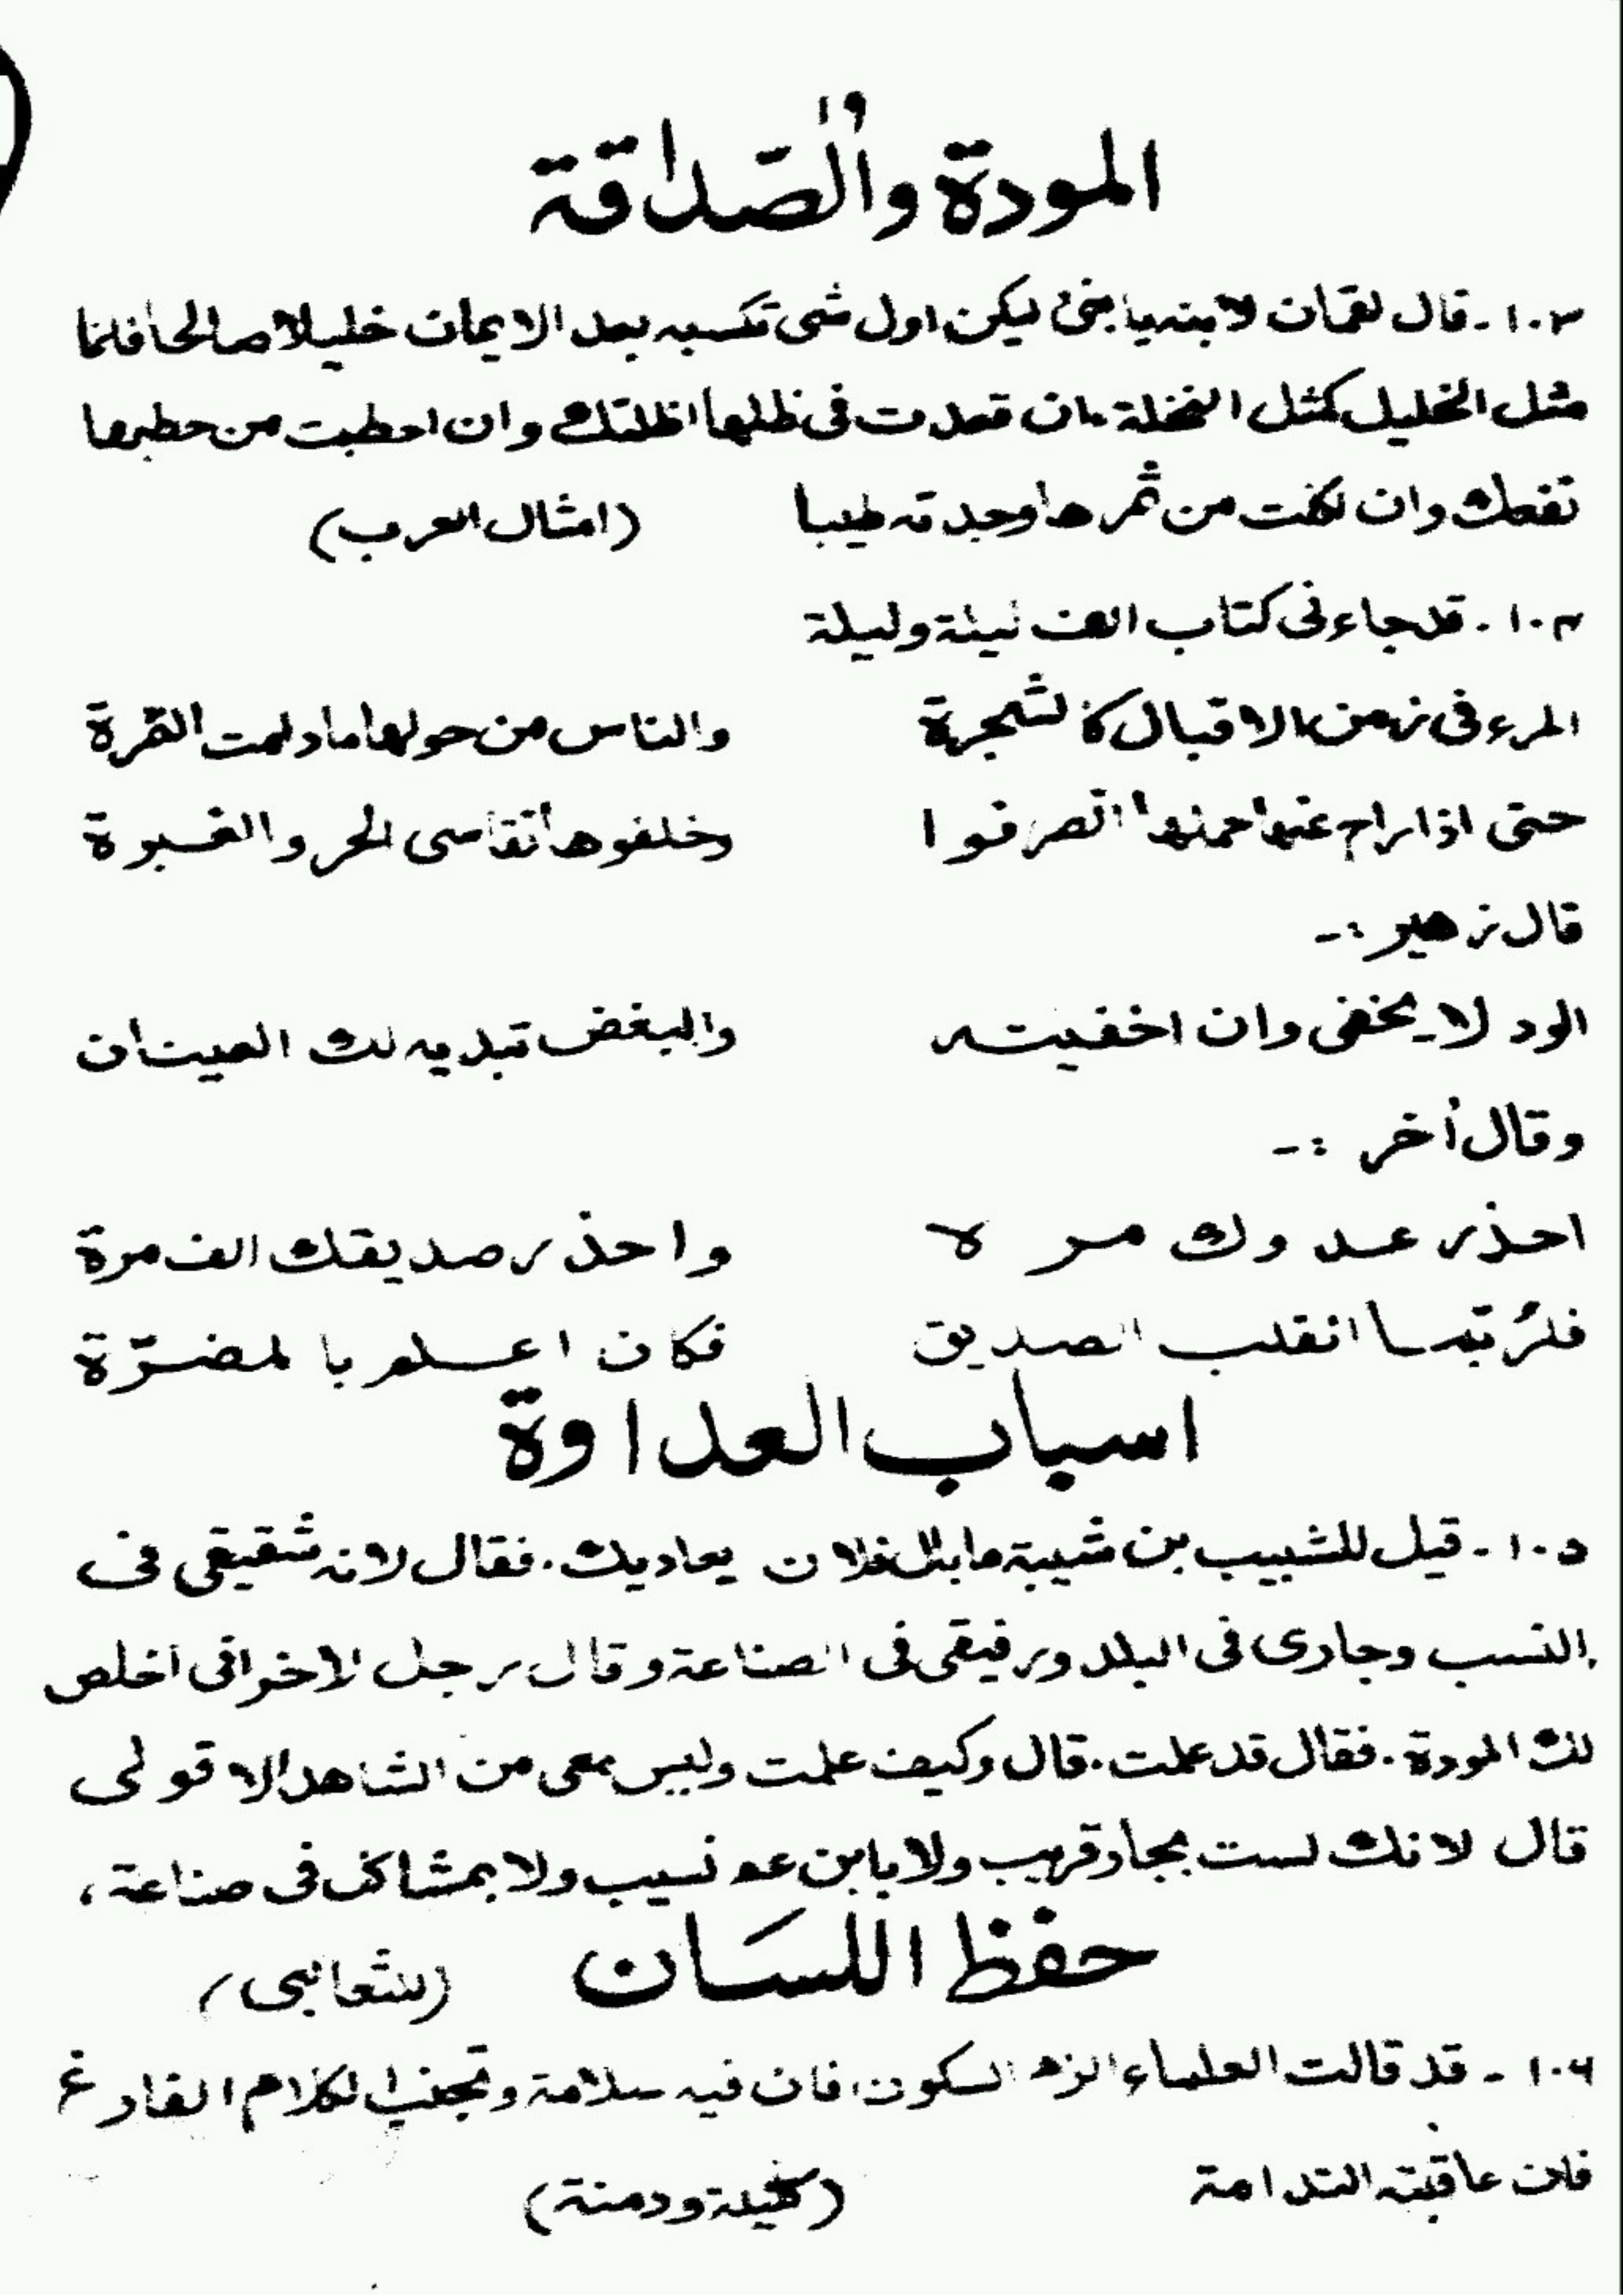 المودة والصّداقة
١٠٣ - قال لقمان لابنه يا بنى ليكن اول شى تكسبه بعد الايمان خليلا صالحا فانما
مثل الخليل كمثل النخلة ان قعدت فى ظلها اظلتك وان احطبت من حطبها
نفعك وان اكلت من ثمرها وجدته طيبا (امثال العرب)
١٠٤ - قد جاء فى كتاب الف ليلة وليلة
المرء فى زمن الاقبال كالشجرة والناس من حولها ما دامت الثمرة
حتى اذا راح عنها حملها انصرفوا وخلفوها تقاسى الحر والغبرة
قال زهير :-
الود لا يخفى وان اخفيته والبغض تبديه لك العينان
وقال أخر :-
احذر عدوك مرة واحذر صديقك الف مرة
فلرُبّما انقلب الصديق فكان اعلم بالمضرّة
اسباب العداوة
١٠٥ - قيل للشبيب بن شيبة ما بال فلان يعاديك. فقال لانه شقيقى فى
النسب وجارى فى البلد ورفيقى فى الصناعة وقال رجل لاخر انى اخلص
لك المودة. فقال قد علمت. قال وكيف علمت وليس معى من الشاهد الا قولى
قال لانك لست بجار قريب ولا بابن عم نسيب ولا بمشاكل فى صناعة،
حفظ اللسَان (للثعالبى)
١٠٦ - قد قالت العلماء الزم السكوت فان فيه سلامة وتجنب الكلام الفارغ
فان عاقبته الندامة (كليلة ودمنة)